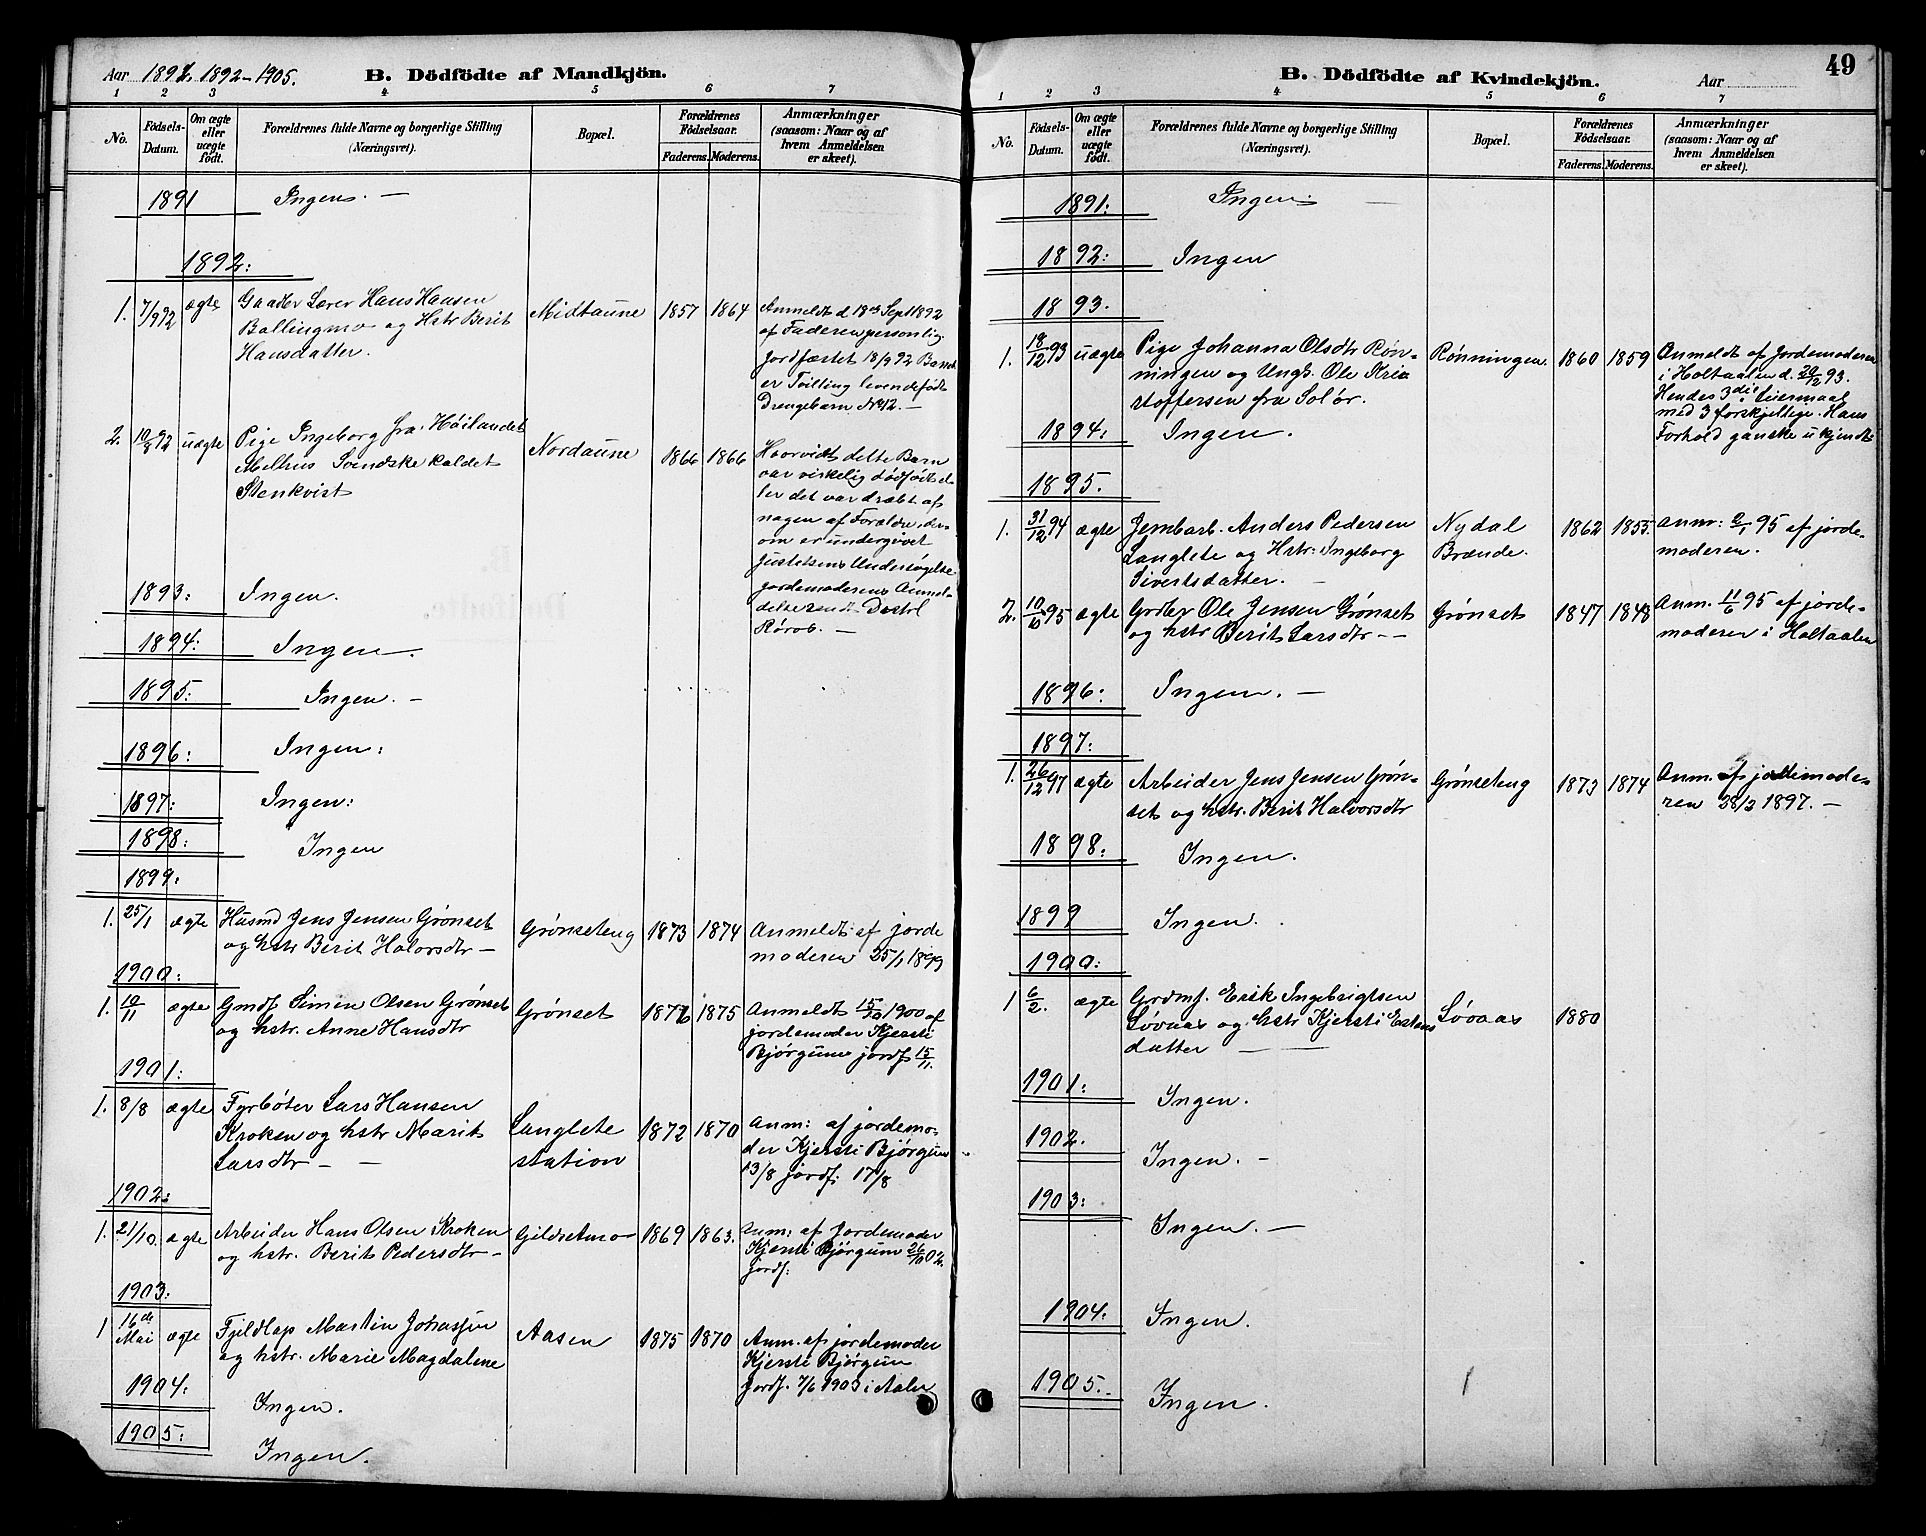 Aar 1891. 1892-1905. B. Dödfödte af Mandkjön.
1 2 3 4 5 6 7
No. Födsels-Datum. Om ægte eller uægte födt. Forældrenes fulde Navne og borgerlige Stilling (Næringsvei). Bopæl. Forældrenes Födselsaar. Faderens. Moderens. Anmærkninger (saasom: Naar og af hvem Anmeldelsen er skeet).
1891 Ingen. —
1892:
1. 7/9 92 ægte Gaadbr Lærer Hans Hansen Midtaune 1857 1864 Anmeldt d 18de Sept 1892
Ballingmo og Hstr Berit af Faderen personlig.
Hansdatter. Jordfæstet 18/9 92 Barnet
er Tvilling levendefødt
Drengebarn No 12. —
2. 10/9 92 uægte Pige Ingeborg fra Høilandet Nordaune 1866 1866 Hvorvidt dette Barn
Melhus Svendske kaldet var virkelig dødfødt el-
Stenkvist ler det var dræbt af
nogen af Forældre, der-
om er undergivet
Justitsens Undersøgelse
1893: Ingen. jordemoderens Anmel-
delse sendt Distrl
Røros. —
1894: Ingen.
1895: Ingen. —
1896: Ingen:
1897: Ingen:
1898: Ingen
1899:
1. 25/1 ægte Husmd Jens Jensen Grønset Grønseteng 1873 1874 Anmeldt af jorde
og hstr Berit Halvorsdtr — moderen 25/1 1899
1900:
1. 10/11 ægte Gmdf Simen Olsen Grønset Grønset 1876 1875 Anmeldt 15/10 1900 af
og hstr. Anne Hansdtr jordemoder Kjersti
Bjørgum jordf 15/11.
1901:
1. 8/8 ægte Fyrbøter Lars Hansen Langlete 1872 1870 Anm: af jordemo-
Kroken og hstr Marit station der Kjersti Bjørgum
Larsdtr — — 13/8 jordf: 17/8
1902:
1. 21/10. ægte Arbeider Hans Olsen Kroken Gildsetmo 1869 1863. Anm: af Jordemoder
og hstr. Berit Pedersdtr — Kjersti Bjørgum 26/10 02.
jordf:
1903:
1 16de Mai ægte Fjeldlap Martin Johassen Aasen 1875 1870 Anm. af jordemoder
og hstr. Marie Magdalene Kjersti Bjørgum
jordf. 7/6 1903 i Aalen
1904: Ingen.
1905: Ingen.
B. Dödfödte af Kvindekjön. Aar 49
1 2 3 4 5 6 7
No. Födsels-Datum. Om ægte eller uægte födt. Forældrenes fulde Navne og borgerlige Stilling (Næringsvei). Bopæl. Forældrenes Födselsaar. Faderens. Moderens. Anmærkninger (saasom: Naar og af hvem Anmeldelsen er skeet).
1891: Ingen.
1892: Ingen
1893:
1. 18/12 93 uægte Pige Johanna Olsdtr Røn- Rønningen. 1860 1859 Anmeldt af Jordemoderen
ningen og Ungk. Ole Kris i Holtaalen d. 20/12 93.
toffersen fra Solør. Hendes 3die Leiermaal
med 3 forskjellige. Hans
1894: Ingen. Forhold ganske ukjendt
1895.
1. 31/12 94 ægte Jernbarb. Anders Pedersen Nydal 1862 1855. Anm: 2/1 95 af jorde-
Langlete og Hstr: Ingeborg Brænde. moderen.
Sivertsdatter. —
2. 10/6 95 ægte Grdbr Ole Jensen Grønset Grønset 1847 1848 Anm. 11/6 95 af jorde-
og hstr Berit Larsdtr — moderen i Holtaalen
1896: Ingen. —
1897:
1. 26/12 97 ægte Arbeider Jens Jensen Grøn- Grønseteng 1873 1874 Anm. af jordemode-
set og hstr. Berit Halvorsdtr ren 28/2 1897. —
1898: Ingen.
1899 Ingen.
1900:
1 6/2. ægte Grdmf. Erik Ingebrigtsen Løvaas 1880
Løvaas og hstr Kjersti Estens
datter —
1901: Ingen.
1902. Ingen. —
1903: Ingen. —
1904: Ingen.
1905. Ingen.